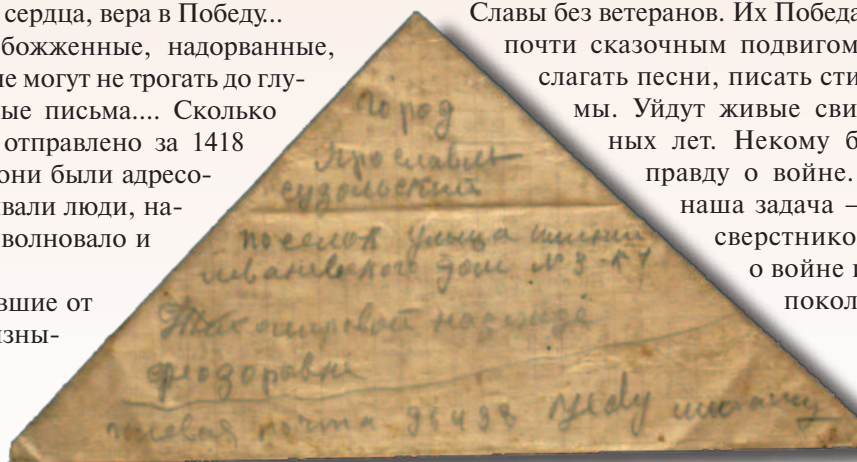 сердца, вера в Победу...
божженные, надорванные,
не могут не трогать до глу-
ые письма.... Сколько
отправлено за 1418
они были адресо-
вали люди, на-
волновало и
вшие от
изны-
Славы без ветеранов. Их Победа
почти сказочным подвигом
слагать песни, писать сти
мы. Уйдут живые сви
ных лет. Некому б
правду о войне.
наша задача –
сверстнико
о войне
покол
город
Ярославль
судольский
поселок улица
дом №
надежде
феодоровне
полевая почта 95498